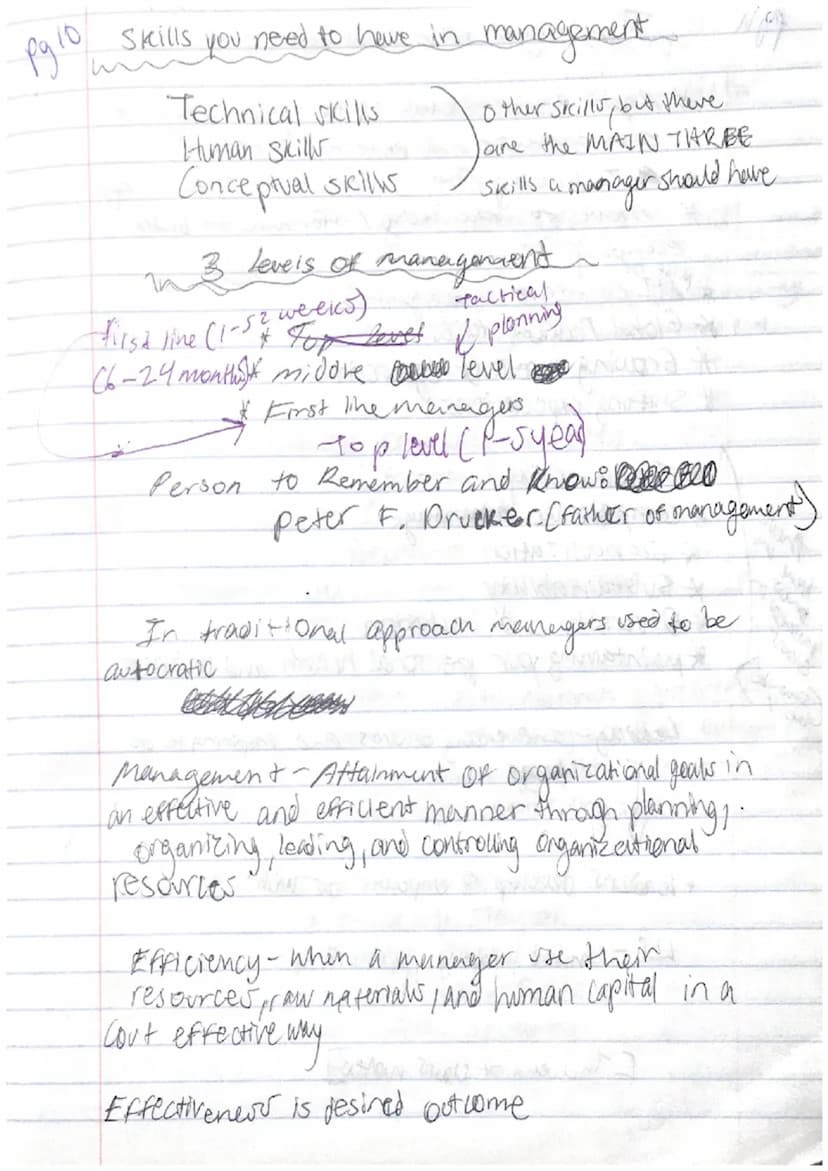 pg 10
Skills you need to have in management
Technical skills
Human skills
Conceptual skills
other skills, but these
are the MAIN THREE
skills a manager should have
3 levels of management
first line (1-52 weeks)
* Top level
tactical
planning
(6-24 months) * middle level
* First line managers
Top level (1-5 year)
Person to Remember and Know:
Peter F. Drucker (father of management)
In traditional approach managers used to be
autocratic
Management - Attainment of organizational goals in
an effective and efficient manner through planning,
organizing, leading, and controlling organizational
resources
Efficiency - when a manager use their
resources, raw materials, and human capital in a
cost effective way
Effectiveness is desired outcome